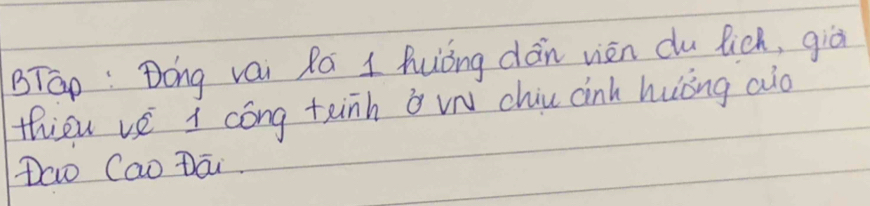 BTập: Đóng vai là 1 hướng dẫn viên du lịch, giới
thiệu về 1 công trình ở VN chịu ảnh hưởng của
Đạo Cao Đài.